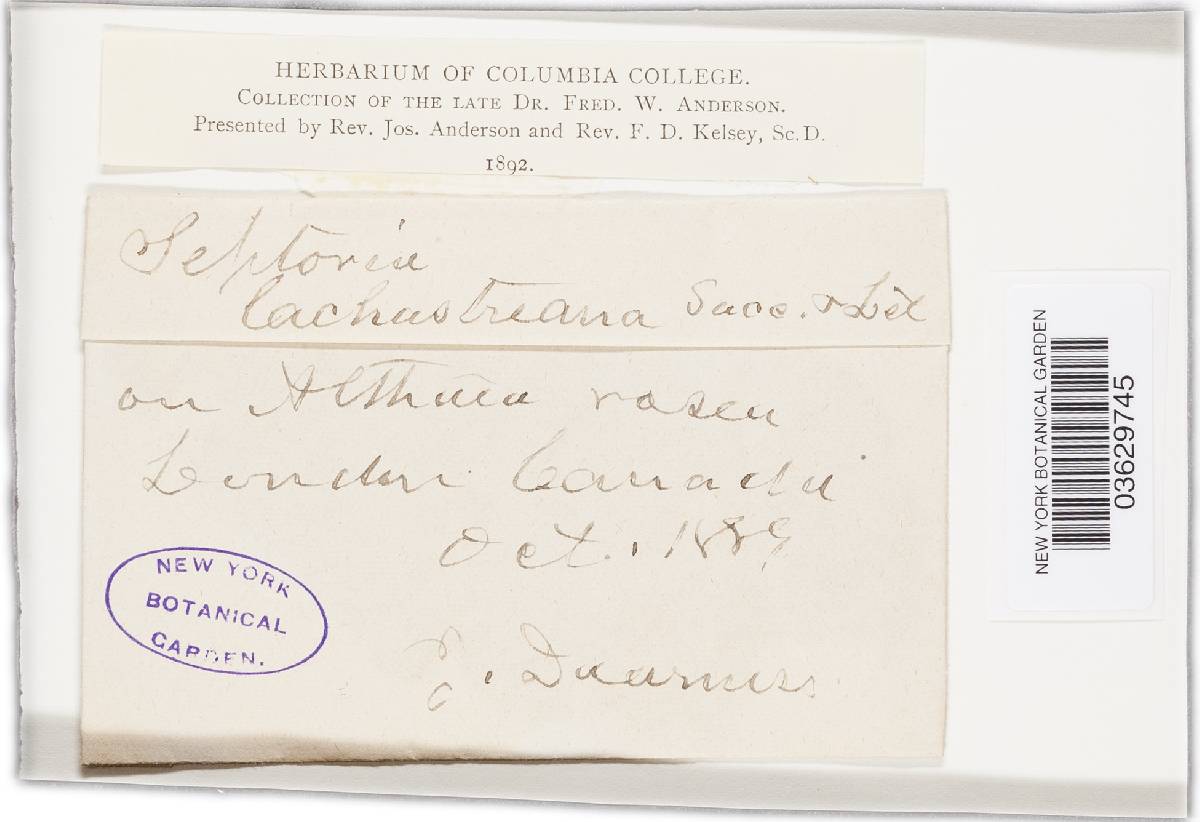 HERBARIUM OF COLUMBIA COLLEGE.
COLLECTION OF THE LATE DR. FRED. W. ANDERSON.
Presented by Rev. Jos. Anderson and Rev. F. D. Kelsey, Sc.D.
1892.
Septoria
Sacc. &
on Althaea rosea
London Canada
Oct. 1889
J. Dearness
NEW YORK
BOTANICAL
GARDEN.
NEW YORK BOTANICAL GARDEN
03629745